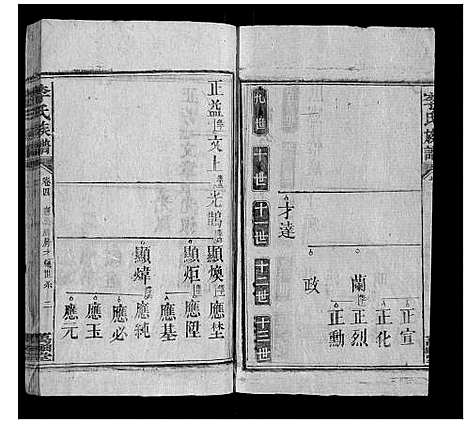 李氏族譜
九世
十世
十一世
十二世
十三世
才達
蘭
政
正宣
正化
正烈
正勳
正益
文上
光鵲
顯煥
顯炬
顯煒
應埜
應陞
應基
應純
應必
應玉
應元
李氏族譜
卷四